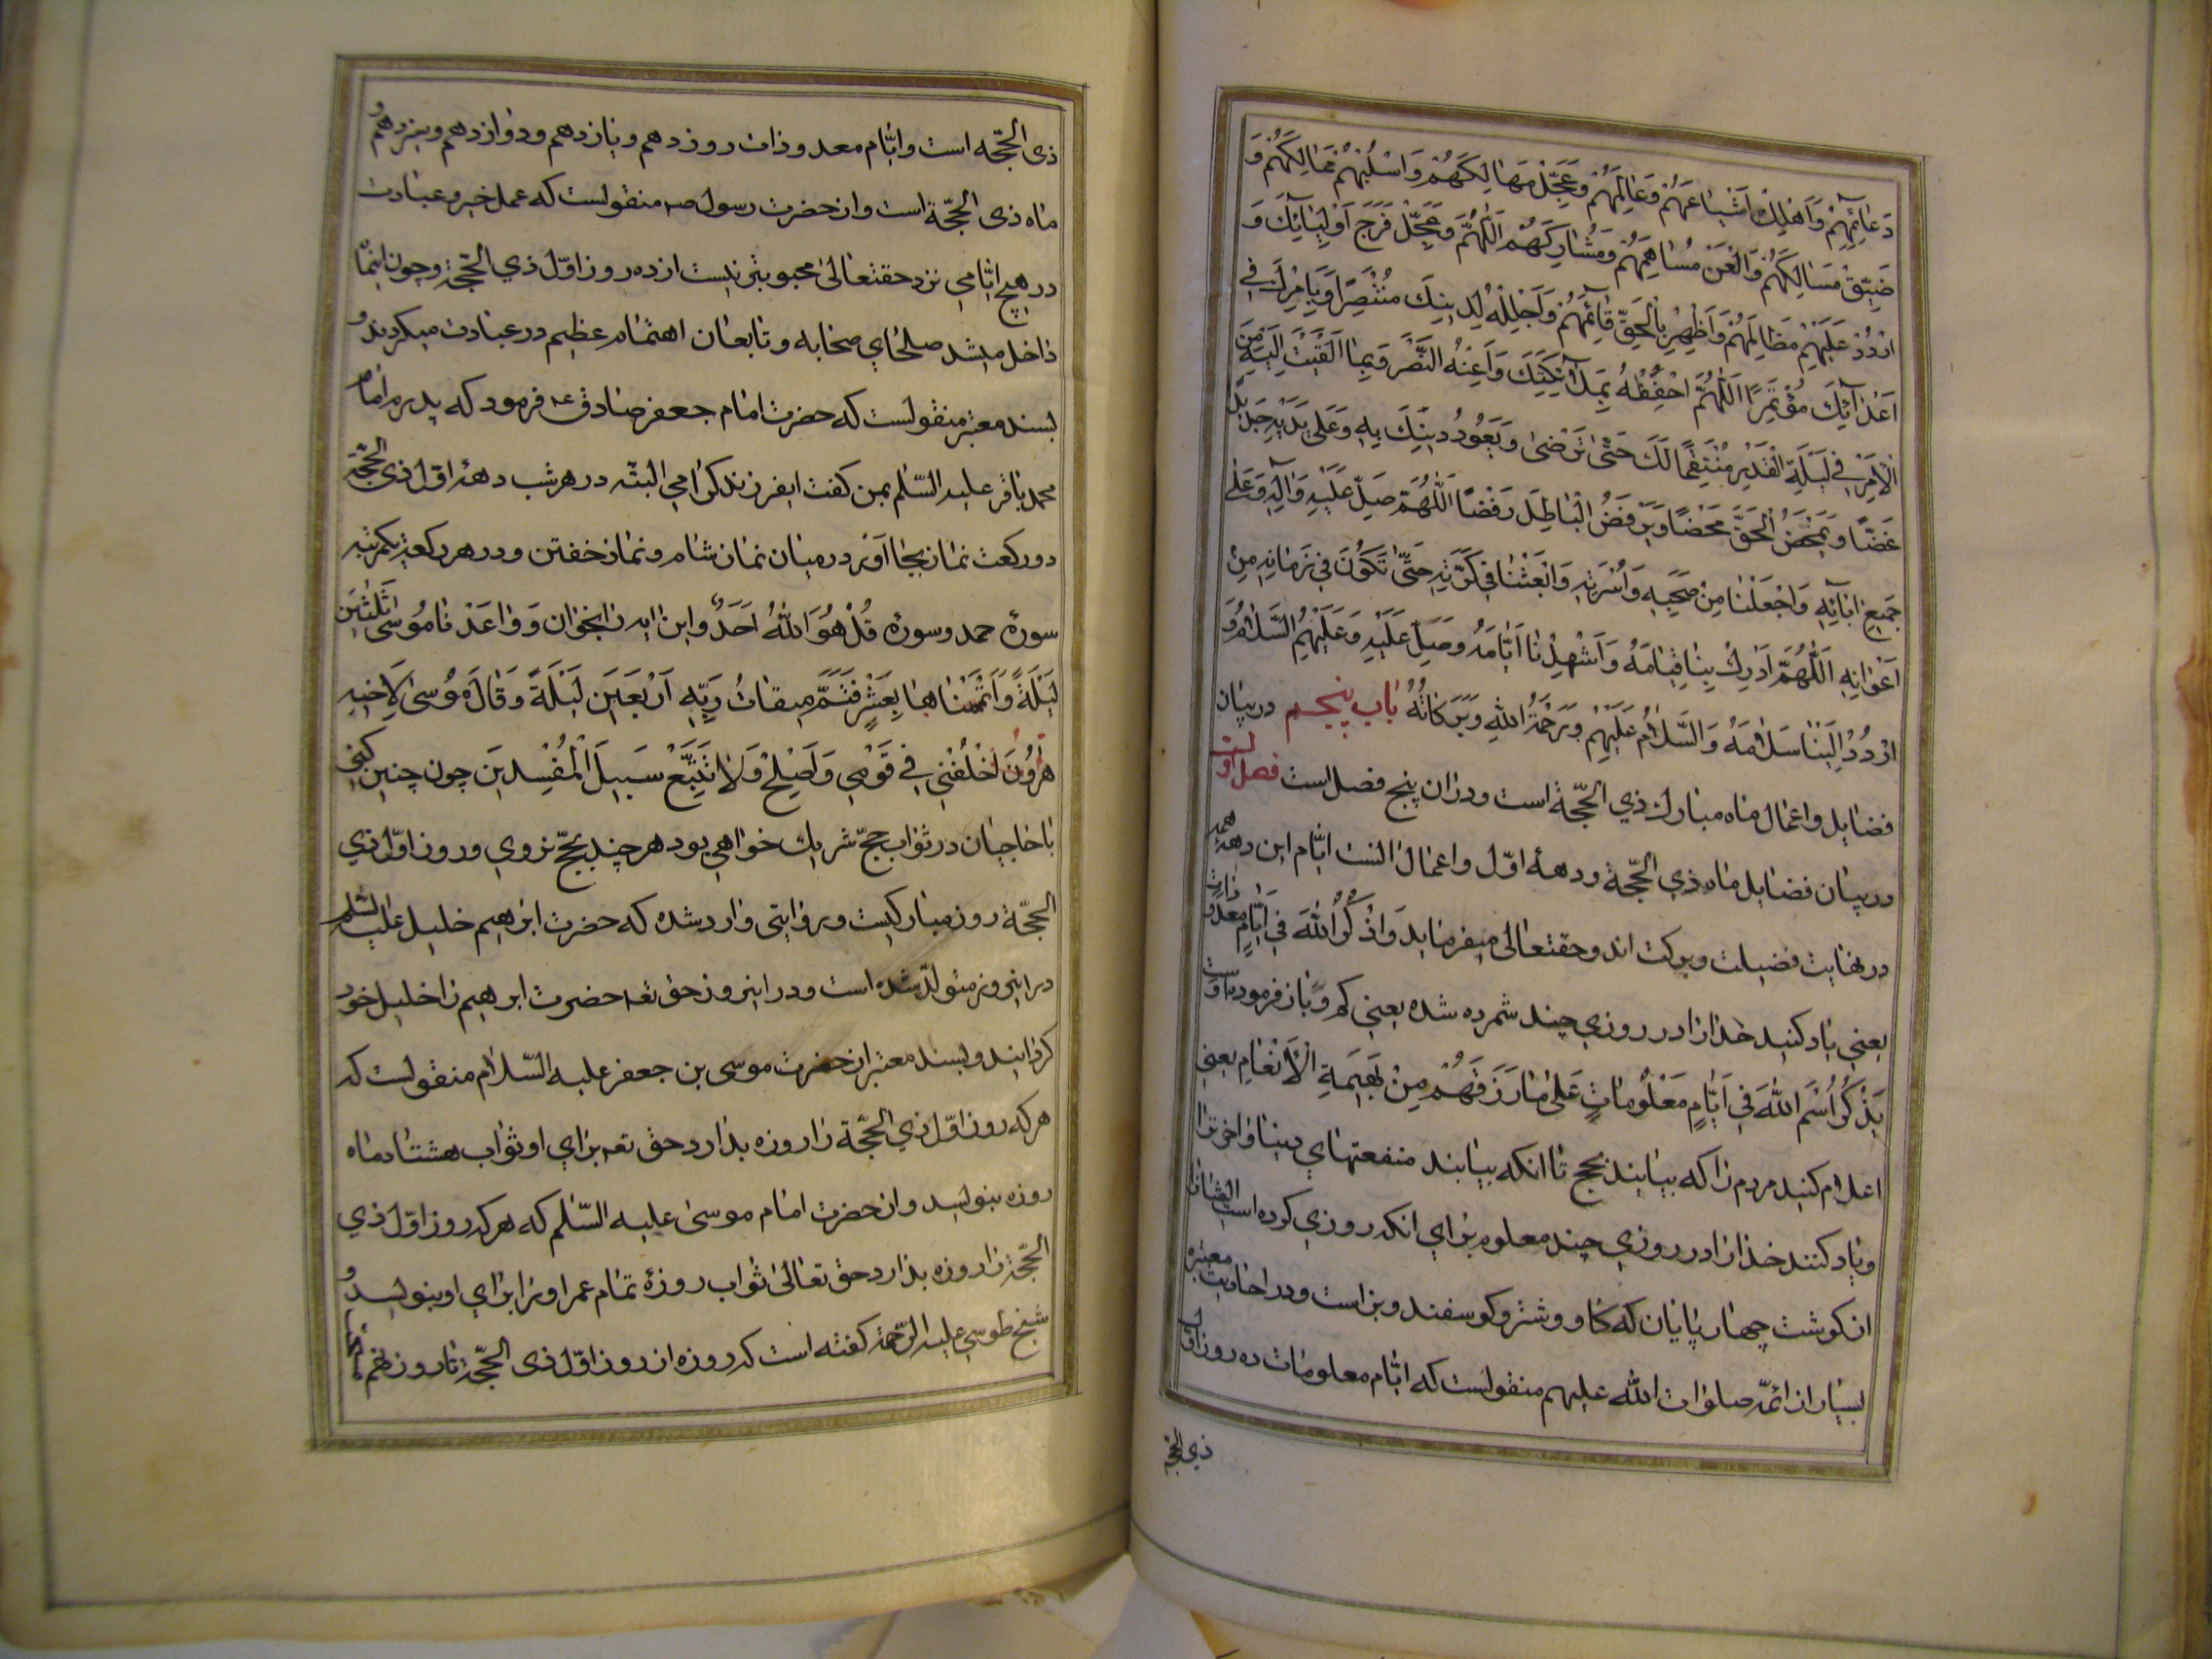 دَعٰائِمِهِمْ وَاَهْلِكْ اَشْيٰاعَهُمْ وَعٰامِلَهُمْ وَعَجِّلْ مَهٰالِكَهُمْ وَاسْلُبْهُمْ مَمٰالِكَهُمْ وَ
ضَيِّقْ مَسٰالِكَهُمْ وَالْعَنْ مُسٰاهِمَهُمْ وَمُشٰارِكَهُمْ اَللّٰهُمَّ وَعَجِّلْ فَرَجَ اَوْلِيٰائِكَ وَ
ارْدُدْ عَلَيْهِمْ مَظٰالِمَهُمْ وَاَظْهِرْ بِالْحَقِّ قٰائِمَهُمْ وَاجْعَلْهُ لِدِينِكَ مُنْتَصِرًا وَبِاَمْرِكَ فِي
اَعْدٰائِكَ مُؤْتَمِرًا اَللّٰهُمَّ احْفُفْهُ بِمَلٰائِكَتِكَ وَاَعِنْهُ النَّصْرَ وَبِمٰا اَلْقَيْتَ اِلَيْهِ مِنَ
الْاَمْرِ فِي لَيْلَةِ الْقَدْرِ مُنْتَقِمًا لَكَ حَتّٰى تَرْضىٰ وَيَعُودَ دِينُكَ بِهِ وَعَلىٰ يَدَيْهِ جَدِيدًا
غَضًّا وَيَمْحَضَ الْحَقَّ مَحْضًا وَيَرْفَضُ الْبٰاطِلَ رَفْضًا اَللّٰهُمَّ صَلِّ عَلَيْهِ وَاٰلِهِ وَعَلىٰ
جَمِيعِ اٰبٰائِهِ وَاجْعَلْنٰا مِنْ صَحْبِهِ وَاُسْرَتِهِ وَابْعَثْنٰا فِي كَرَّتِهِ حَتّٰى نَكُونَ فِي زَمٰانِهِ مِنْ
اَعْوٰانِهِ اَللّٰهُمَّ اَدْرِكْ بِنٰا قِيٰامَهُ وَاَشْهِدْنٰا اَيّٰامَهُ وَصَلِّ عَلَيْهِ وَعَلَيْهِمُ السَّلٰامُ وَ
ارْدُدْ اِلَيْنٰا سَلٰامَهُ وَالسَّلٰامُ عَلَيْهِمْ وَرَحْمَةُ اللّٰهِ وَبَرَكٰاتُهُ باب پنجم در بيان
فضايل و اعمال ماه مبارك ذي الحجّة است و دران پنج فصل است فصل اوّلست
در بيان فضايل ماه ذي الحجّة و دههٔ اوّل و اعمال انست ايّام اين دهه همه
در نهايت فضيلت و بركت اند و حقتعالى ميفرمايد وَاذْكُرُوا اللّٰهَ فِي اَيّٰامٍ معدودات
يعني ياد كنيد خدا را در روزي چند شمرده شده يعني كم و باز فرموده است و
يَذْكُرُوا اسْمَ اللّٰهَ فِي اَيّٰامٍ مَعْلُومٰاتٍ عَلىٰ مٰا رَزَقَهُمْ مِنْ بَهِيمَةِ الْاَنْعٰامِ يعني
اعلام كنيد مردم را كه بيايند بحج تا انكه بيابند منفعتهاي دنيا و اخرت را
و ياد كنند خدا را در روزي چند معلوم براي انكه روزي كرده است ايشان را
از گوشت چهار پايان كه گاو و شتر و گوسفند و بز است و در احاديث معتبره
بسيار از ائمّه صلوات اللّه عليهم منقولست كه ايّام معلومات ده روز اوّل
ذي الحجّة
ذى الحجّه است و ايّام معدودات روز دهم و يازدهم و دوازدهم و سيزدهم
ماه ذى الحجّة است و از حضرت رسول صه منقولست كه عمل خير و عبادت
در هيچ ايّامي نزد حقتعالىٰ محبوبتر نيست از ده روز اوّل ذي الحجّة و چون اين ماه
داخل ميشد صلحاي صحابه و تابعان اهتمام عظيم در عبادت ميكردند و
بسند معتبر منقولست كه حضرت امام جعفر صادق عه فرمود كه پدرم امام
محمد باقر عليه السّلم بمن گفت ايفرزند گرامي البتّه در هر شب دههٔ اوّل ذي الحجّة
دو ركعت نماز بجا اور در ميان نماز شام و نماز خفتن و در هر ركعت يكمرتبه
سورهٔ حمد و سورهٔ قُلْ هُوَ اللّٰهُ اَحَدٌ و اين ايه را بخوان وَ وٰاعَدْنٰا مُوسىٰ ثَلٰثِينَ
لَيْلَةً وَ اَتْمَمْنٰاهٰا بِعَشْرٍ فَتَمَّ مِيقٰاتُ رَبِّهِ اَرْبَعِينَ لَيْلَةً وَقٰالَ مُوسىٰ لِاَخِيهِ
هٰرُونَ اخْلُفْنِي فِي قَوْمِي وَاَصْلِحْ وَلٰا تَتَّبِعْ سَبِيلَ الْمُفْسِدِينَ چون چنين كنى
با حاجيان در ثواب حجّ شريك خواهي بود هر چند بحجّ نروي و روز اوّل ذي
الحجّة روز مباركيست و بروايتى وارد شده كه حضرت ابرهيم خليل عليه السلم
در اينروز متولّد شده است و در اينروز حق تعه حضرت ابرهيم را خليل خود
گردانيد و بسند معتبر از حضرت موسى بن جعفر عليه السّلام منقولست كه
هر كه روز اوّل ذي الحجّة را روزه بدارد حق تعه براي او ثواب هشتاد ماه
روزه بنويسد و از حضرت امام موسىٰ عليه السّلم كه هر كه روز اوّل ذي
الحجّة را روزه بدارد حق تعالىٰ ثواب روزهٔ تمام عمر او را براي او بنويسد و
شيخ طوسي عليه الرّحمة گفته است كه روزه از روز اوّل ذى الحجّة تا روز نهم